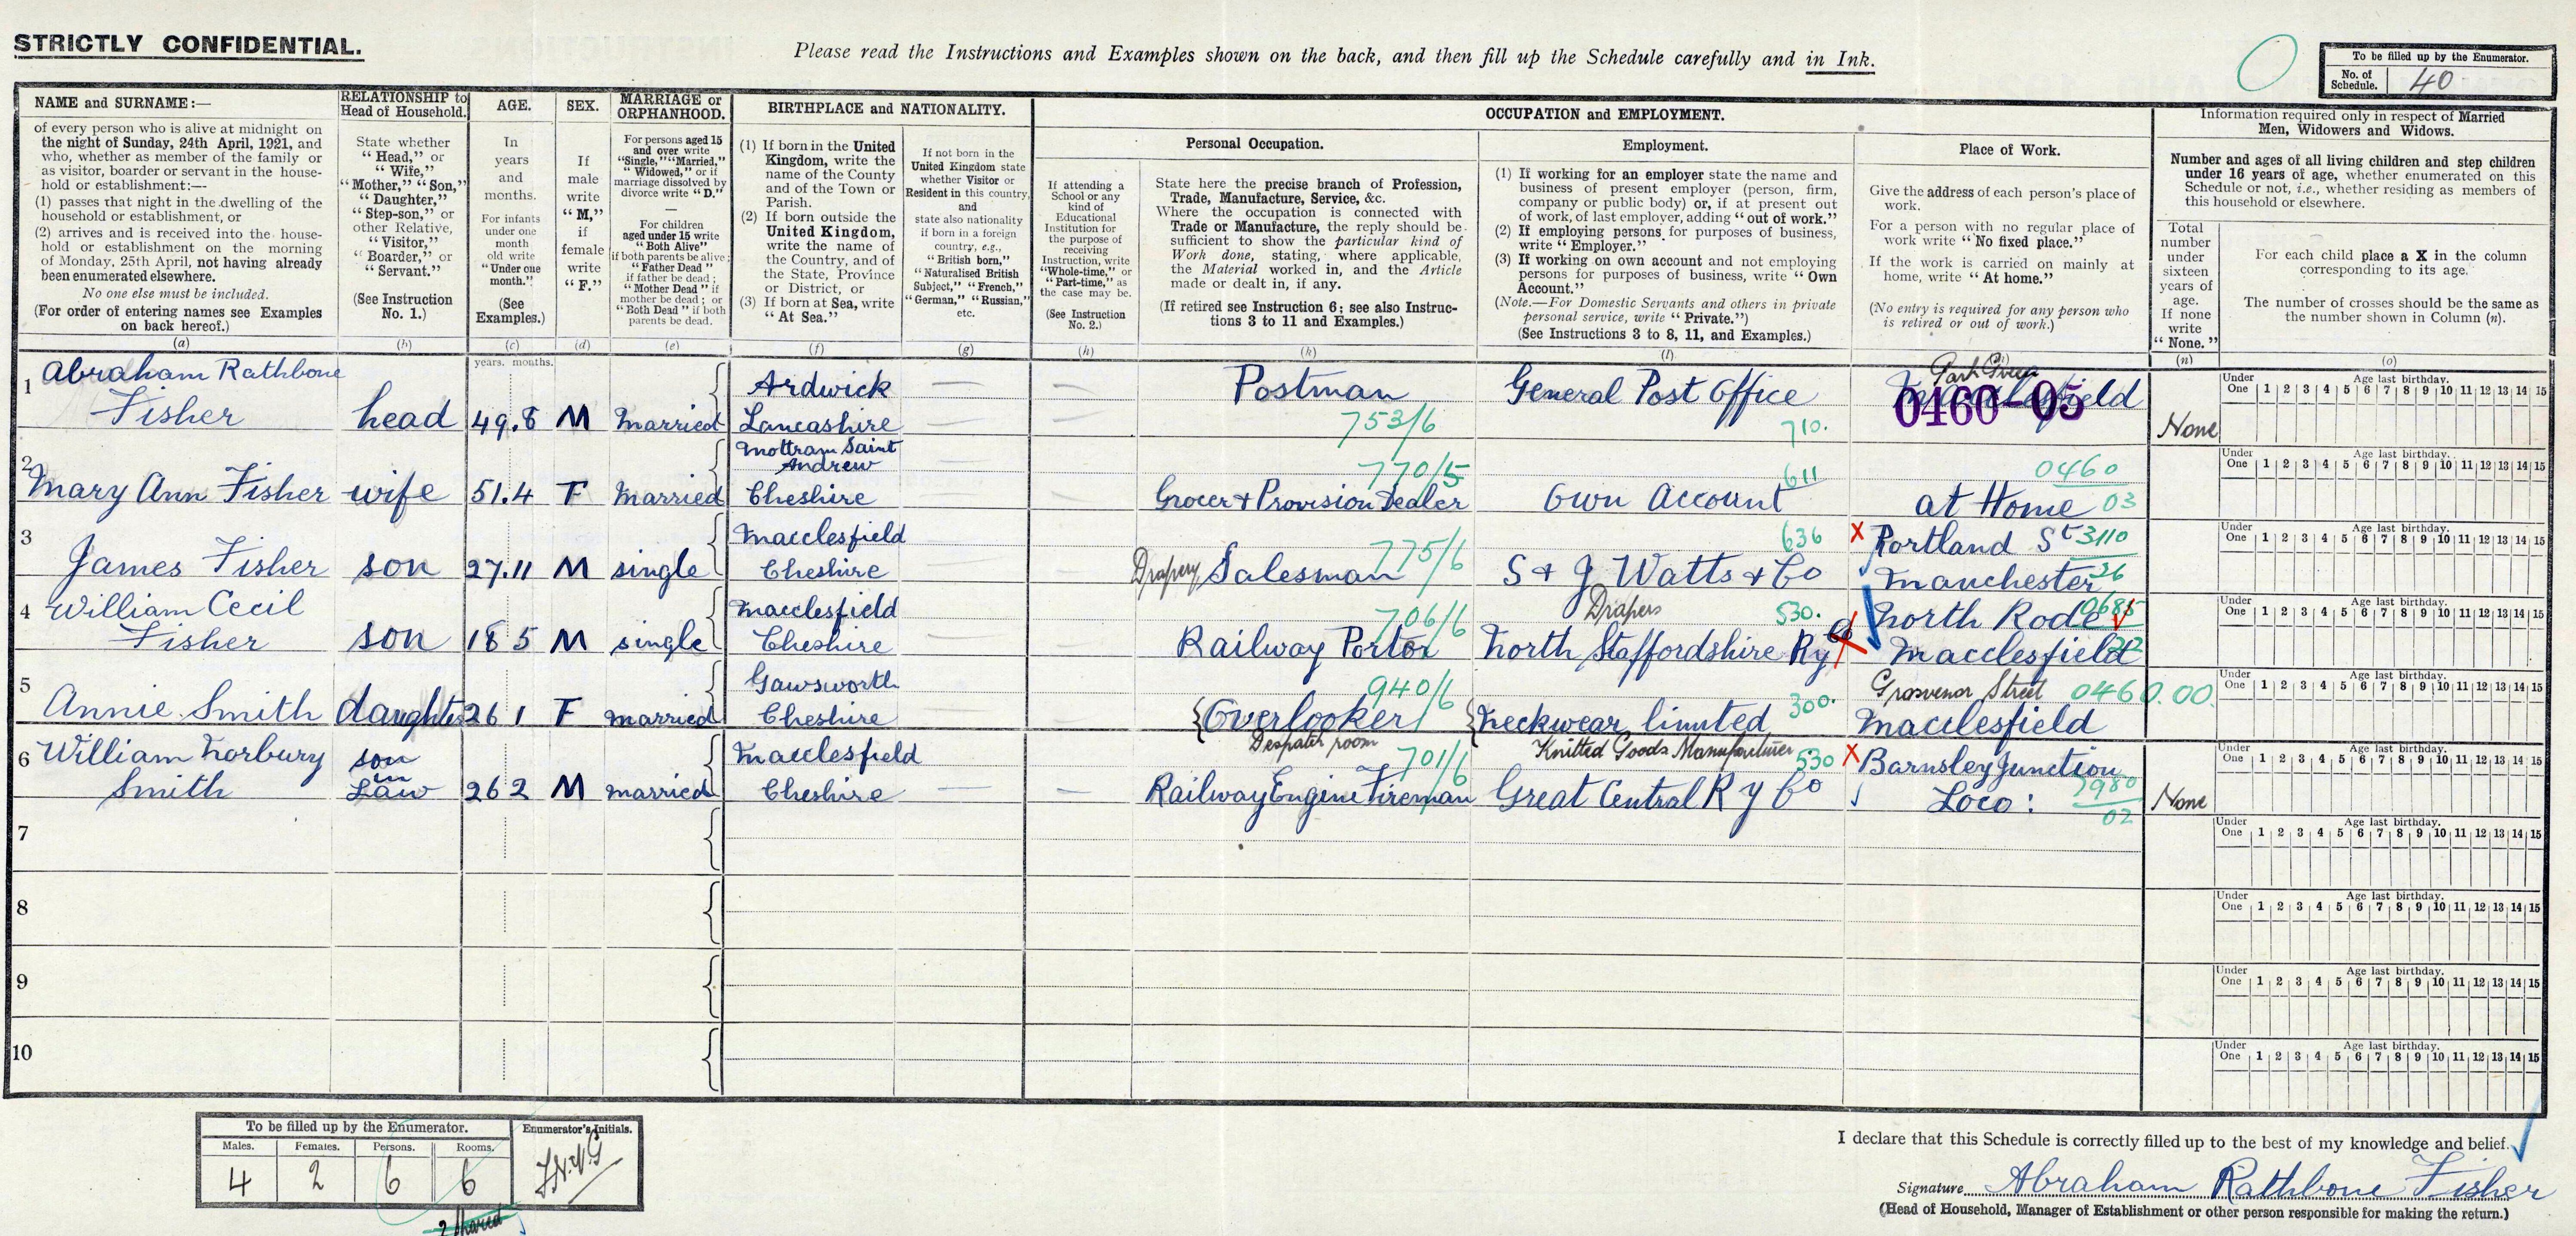 STRICTLY CONFIDENTIAL.
Please read the Instructions and Examples shown on the back, and then fill up the Schedule carefully and in Ink.
To be filled up by the Enumerator.
No. of Schedule. 40
NAME and SURNAME:—
of every person who is alive at midnight on
the night of Sunday, 24th April, 1921, and
who, whether as member of the family or
as visitor, boarder or servant in the house-
hold or establishment:—
(1) passes that night in the dwelling of the
household or establishment, or
(2) arrives and is received into the house-
hold or establishment on the morning
of Monday, 25th April, not having already
been enumerated elsewhere.
No one else must be included.
(For order of entering names see Examples
on back hereof.)
(a)
RELATIONSHIP to
Head of Household.
State whether
"Head," or
"Wife,"
"Mother," "Son,"
"Daughter,"
"Step-son," or
other Relative,
"Visitor,"
"Boarder," or
"Servant."
(See Instruction
No. 1.)
(b)
AGE.
In
years
and
months.
For infants
under one
month
old write
"Under one
month."
(See
Examples.)
(c)
years. months.
SEX.
If
male
write
"M,"
if
female
write
"F."
(d)
MARRIAGE or
ORPHANHOOD.
For persons aged 15
and over write
"Single," "Married,"
"Widowed," or if
marriage dissolved by
divorce write "D."
—
For children
aged under 15 write
"Both Alive"
if both parents be alive;
"Father Dead"
if father be dead;
"Mother Dead" if
mother be dead; or
"Both Dead" if both
parents be dead.
(e)
BIRTHPLACE and NATIONALITY.
(1) If born in the United
Kingdom, write the
name of the County
and of the Town or
Parish.
(2) If born outside the
United Kingdom,
write the name of
the Country, and of
the State, Province
or District, or
(3) If born at Sea, write
"At Sea."
(f)
If not born in the
United Kingdom state
whether Visitor or
Resident in this country,
and
state also nationality
if born in a foreign
country, e.g.,
"British born,"
"Naturalised British
Subject," "French,"
"German," "Russian,"
etc.
(g)
OCCUPATION and EMPLOYMENT.
Personal Occupation.
If attending a
School or any
kind of
Educational
Institution for
the purpose of
receiving
Instruction, write
"Whole-time," or
"Part-time," as
the case may be.
(See Instruction
No. 2.)
(h)
State here the precise branch of Profession,
Trade, Manufacture, Service, &c.
Where the occupation is connected with
Trade or Manufacture, the reply should be
sufficient to show the particular kind of
Work done, stating, where applicable,
the Material worked in, and the Article
made or dealt in, if any.
(If retired see Instruction 6; see also Instruc-
tions 3 to 11 and Examples.)
(k)
Employment.
(1) If working for an employer state the name and
business of present employer (person, firm,
company or public body) or, if at present out
of work, of last employer, adding "out of work."
(2) If employing persons for purposes of business,
write "Employer."
(3) If working on own account and not employing
persons for purposes of business, write "Own
Account."
(Note.—For Domestic Servants and others in private
personal service, write "Private.")
(See Instructions 3 to 8, 11, and Examples.)
(l)
Place of Work.
Give the address of each person's place of
work.
For a person with no regular place of
work write "No fixed place."
If the work is carried on mainly at
home, write "At home."
(No entry is required for any person who
is retired or out of work.)
(m)
Information required only in respect of Married
Men, Widowers and Widows.
Number and ages of all living children and step children
under 16 years of age, whether enumerated on this
Schedule or not, i.e., whether residing as members of
this household or elsewhere.
Total
number
under
sixteen
years of
age.
If none
write
"None."
(n)
For each child place a X in the column
corresponding to its age.
The number of crosses should be the same as
the number shown in Column (n).
(o)
1 Abraham Rathbone Fisher head 49.8 M Married Ardwick Lancashire — — Postman 753/6 General Post Office 710. Park Green Macclesfield 0460-05 None
Under One 1 2 3 4 5 6 7 8 9 10 11 12 13 14 15 Age last birthday.
2 Mary Ann Fisher wife 51.4 F Married Mottram Saint Andrew Cheshire Grocer + Provision Dealer 770/5 Own Account 611 at Home 0460 03
Under One 1 2 3 4 5 6 7 8 9 10 11 12 13 14 15 Age last birthday.
3 James Fisher son 27.11 M single Macclesfield Cheshire Drapery Salesman 775/6 S + J Watts + Co Drapers 636 X Portland St Manchester 3110 26
Under One 1 2 3 4 5 6 7 8 9 10 11 12 13 14 15 Age last birthday.
4 William Cecil Fisher son 18 5 M single Macclesfield Cheshire Railway Porter 706/6 North Staffordshire Ry Co 530. North Rode Macclesfield
Under One 1 2 3 4 5 6 7 8 9 10 11 12 13 14 15 Age last birthday.
5 Annie Smith daughter 26 1 F married Gawsworth Cheshire Overlooker Despatch room 940/6 Neckwear limited Knitted Goods Manufacturer 300. Grosvenor Street Macclesfield 0460.00.
Under One 1 2 3 4 5 6 7 8 9 10 11 12 13 14 15 Age last birthday.
6 William Norbury Smith son in Law 26 2 M married Macclesfield Cheshire — — Railway Engine Fireman 701/6 Great Central Ry Co 530 X Barnsley Junction Loco: 02 None
Under One 1 2 3 4 5 6 7 8 9 10 11 12 13 14 15 Age last birthday.
7
Under One 1 2 3 4 5 6 7 8 9 10 11 12 13 14 15 Age last birthday.
8
Under One 1 2 3 4 5 6 7 8 9 10 11 12 13 14 15 Age last birthday.
9
Under One 1 2 3 4 5 6 7 8 9 10 11 12 13 14 15 Age last birthday.
10
Under One 1 2 3 4 5 6 7 8 9 10 11 12 13 14 15 Age last birthday.
To be filled up by the Enumerator.
Males. Females. Persons. Rooms.
4 2 6 6
2 shared
Enumerator's Initials.
I declare that this Schedule is correctly filled up to the best of my knowledge and belief.
Signature Abraham Rathbone Fisher
(Head of Household, Manager of Establishment or other person responsible for making the return.)